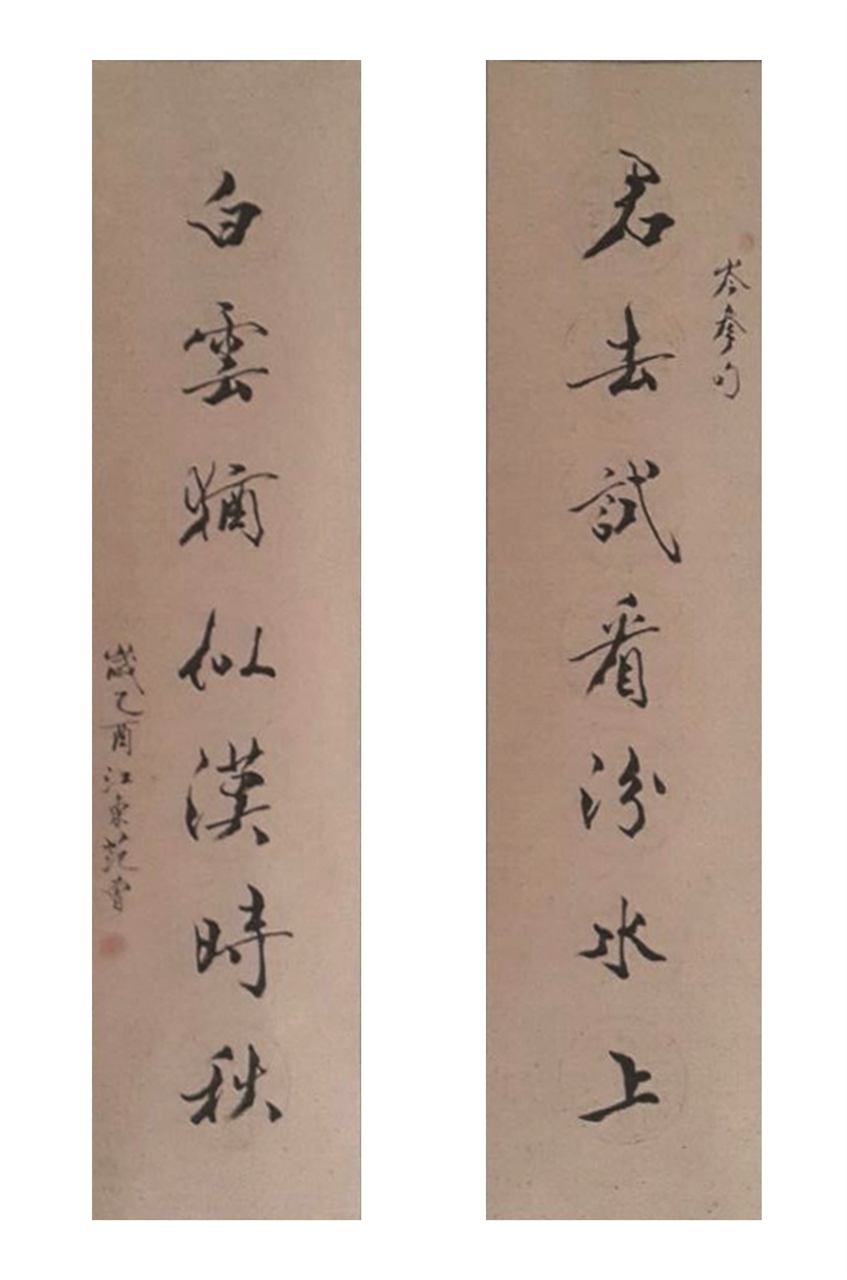 岑參句
君去試看汾水上
白雲猶似漢時秋
歲乙酉江東范曾